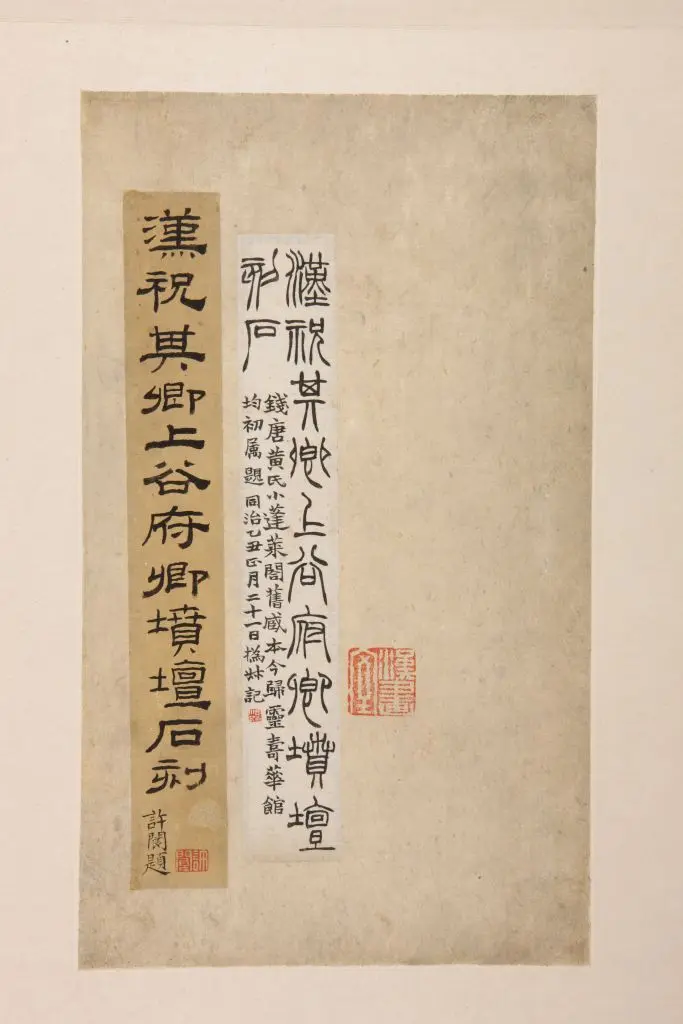 漢祝其卿上谷府卿墳壇
刻石
錢唐黃氏小蓬萊閣舊臧本今歸靈壽華館
均初屬題同治乙丑正月二十一日撝叔記
漢祝其卿上谷府卿墳壇石刻
許題